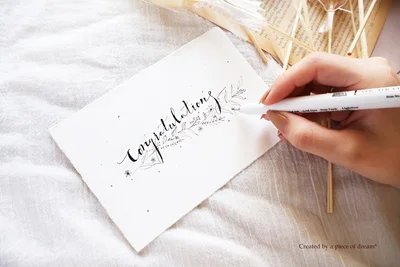 Congratulations
Created by a piece of dream*